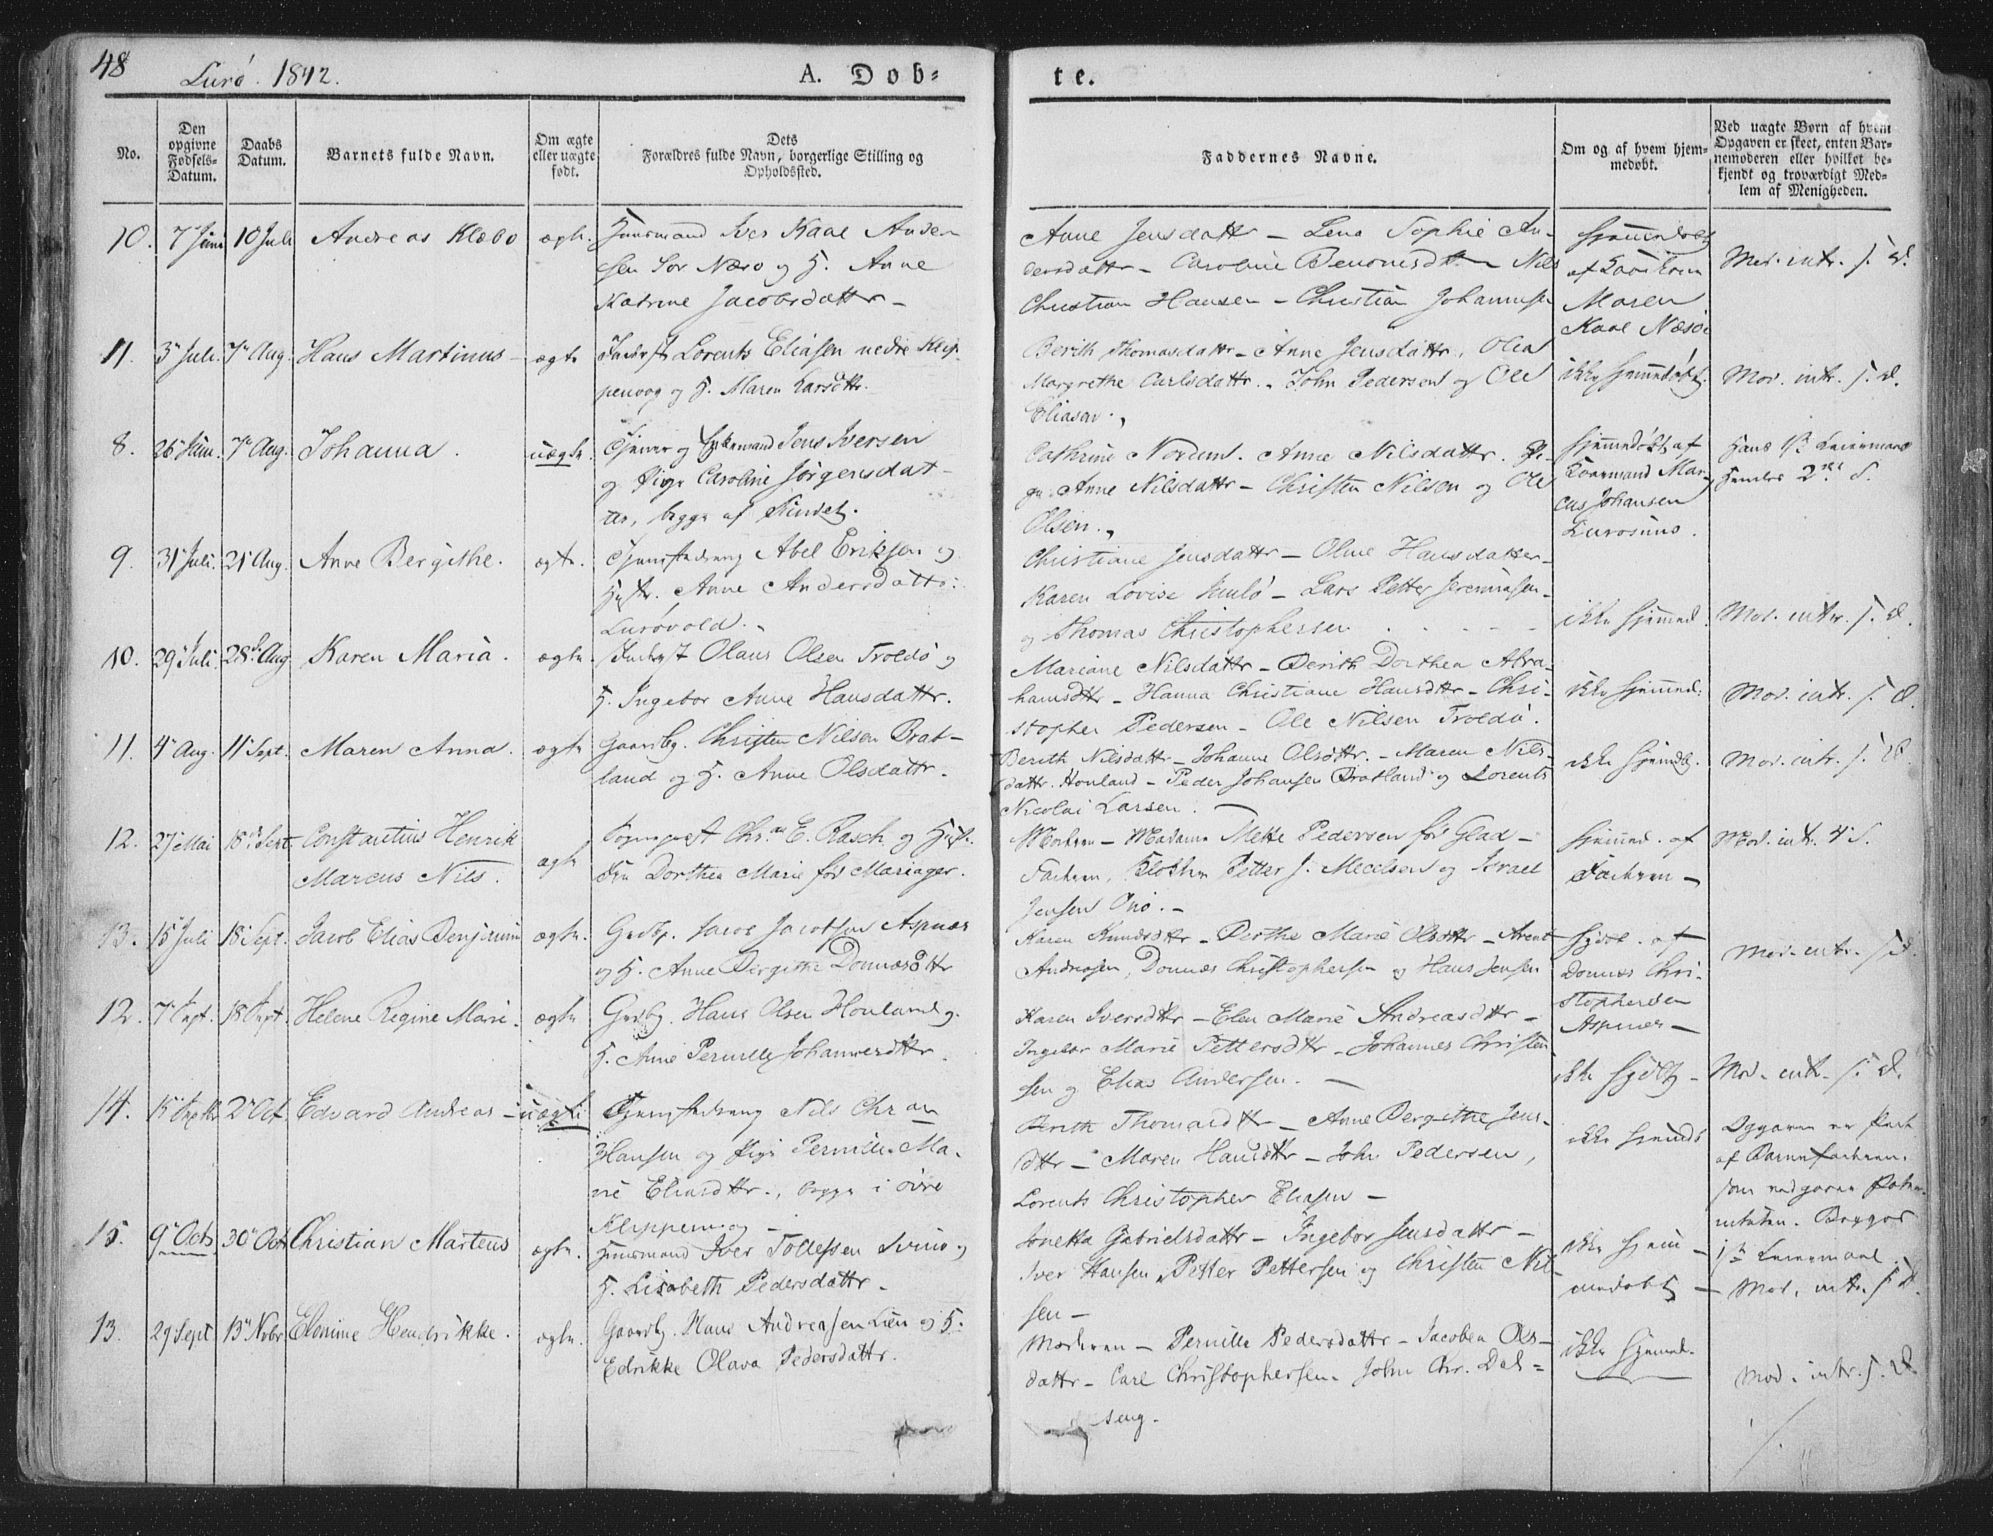 48
Lurö. 1842.
A. Dob-
te.
No.
Den opgivne Fødsels-Datum.
Daabs Datum.
Barnets fulde Navn.
Om ægte eller uægte født.
Dets
Forældres fulde Navn, borgerlige Stilling og
Opholdssted.
Faddernes Navne.
Om og af hvem hjem-
medøbt.
Ved uægte Børn af hvem
Opgaven er skeet, enten Bar-
nemoderen eller hvilket be-
kjendt og troværdigt Med-
lem af Menigheden.
10. 7 Juni 10 Juli Andreas Klæbo ægte. Huusmand Iver Kaae Ander-
sen Sör Næsö og H. Anne
Katrine Jacobsdattr -
Anne Jensdattr - Lena Sophie An-
dersdattr - Caroline Benonisdtr - Nils
Christian Hansen - Christian Johannesen
Hjemmedøbt
af
Maren
Kaae Næsöe
Mod. intr. s. D.
11. 3 Juli. 7 Aug. Hans Martinus - ægte Inderst Lorents Eliasen nedre Klip-
penvog og H. Maren Larsdtr.
Berith Thomasdattr - Anne Jensdattr, Olea
Margrethe Carlsdattr. - John Pedersen og Ole
Eliasen.
ikke hjemmedøbt.
Mod. intr. s. D.
8. 26 Juni. 7 Aug. Johanna. uægte. Tjener og Jens Iversen
og Pige Caroline Jörgensdat-
ter, begge af Stuvet.
Cathrine Nordum. Anne Nilsdattr. Pi-
ge Anne Nilsdattr - Christen Nilsen og Ole
Olsen.
hjemmedøbt af
Mar-
cus Johansen
Lurosund.
Hans 1ste Leiermaal
Hendes 2det d.
9. 31 Juli. 21 Aug. Anne Bergithe. ægte. Abel Eriksen og
Hustr. Anne Andersdattr
Luróvold.
Christiane Jensdattr - Oline Hansdatter -
Karen Lovise - Lars Petter Jeremiasen -
og Thomas Christophersen
ikke hjemmed.
Mod. intr. s. D.
10. 29 Juli 28 Aug Karen Maria. ægte Inderst Olaus Olsen Troldö og
H. Ingebor Anne Hansdattr.
Mariane Nilsdattr - Berith Dorthea Abra-
hamsdtr - Hanna Christiane Hansdtr - Chri-
stopher Pedersen - Ole Nilsen Troldö.
ikke hjemmed.
Mod. intr. s. D.
11. 4 Aug. 11 Sept. Maren Anna. ægte Gaardbr. Christen Nilsen Brat-
land og H. Anne Olsdattr.
Berith Nilsdattr - Johanne Olsdtr. - Maren Nils-
dattr. Honland - Peder Johansen Bratland og Lorents
Nicolai Larsen. -
ikke hjemdb.
Mod. intr. s. D.
12. 27 Mai 18 Sept Constantius Henrik
Marcus Nils. ægte Sognepræst Chr. E. Rasch og Hust.
Fru Dorthea Marie föd Mariager.
Moderen - Madame Mette Pedersen föd Glad -
Faderen, Petter J. Meilsen og Israel
Jensen Onö. -
hjemmed. af
Faderen -
Mod. intr. 4 S.
13. 15 Juli 18 Sept. Jacob Elias Benjamin ægte. Grdbr. Jacob Jacobsen Aspnæs
og H. Anne Bergithe Donnæsdtr
Karen Knudsdtr - Berthe Marie Olsdtr - Arent
Andreasen, Donnæs Christophersen og Hans Jensen
hjdbt. af
Donnæs Chri-
stophersen
Aspnæs -
Mod. intr. s. D.
12. 7 Sept. 18 Sept. Helene Regine Marie. ægte Grdbr. Hans Olsen Honland og
H. Anne Pernille Johannesdtr.
Karen Iversdtr - Elen Marie Andreasdtr -
Ingebor Marie Pettersdtr - Johannes Christen-
sen og Elias Andersen. -
ikke hjdbt -
Mod. intr. s. D.
14. 15 Septbr 2 Oct. Edvard Andreas - uægte Nils Chr.an
Hansen og Pige Pernille Ma-
rie Eliasdtr., begge i övre
Klippenvog -
Berith Thomasdtr - Anne Bergithe Jens-
dtr - Maren Hansdtr - John Pedersen,
Lorents Christopher Eliasen -
ikke hjemdb
Opgaven er skeet
af Barnefaderen,
som vedgaaer Pater-
niteten. Begges
1ste Leiermaal
15. 9 Octb 30 Oct Christian Martens ægte. Huusmand Iver Tollefsen og
H. Lisabeth Pedersdattr -
Jonetta Gabrielsdattr - Ingebor Jensdattr -
Iver Hansen, Petter Pettersen og Christen Nil-
sen -
ikke hjem-
medøbt
- Mod. intr. s. D.
13. 29 Sept 13 Novbr Elenine Hendrikke. ægte. Gaardbr. Hans Andreasen Lien og H.
Edrikke Olava Pedersdattr.
Moderen - Pernille Pedersdattr - Jacoben Ols-
dattr - Carl Christophersen - John Chr. Dals-
eng.
ikke hjemmed.
Mod. intr. s. D.